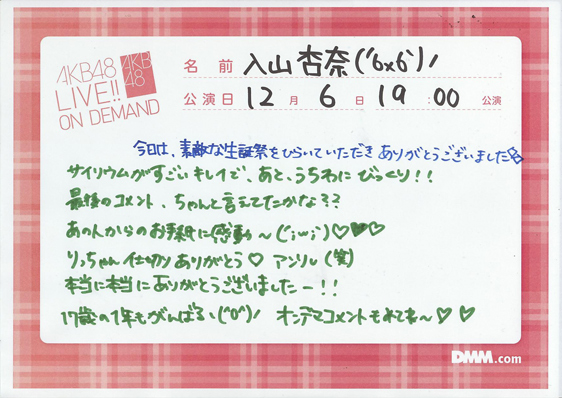 AKB48
LIVE!!
ON DEMAND
AKB
48
名前 入山杏奈('6x6`)ノ
公演日 12月6日 19:00 公演
今日は、素敵な生誕祭をひらいていただきありがとうございました
サイリウムがすごいキレイで、あと、うちわにびっくり!!
最後のコメント、ちゃんと言えてたかな??
あの人からのお手紙に感動〜(;ω;)♡♥♡
りっちゃん仕切りありがとう♡ アンリル(笑)
本当に本当にありがとうございましたー!!
17歳の1年もがんばるヽ(^o^)ノ オンデマコメントもみてね〜♡♡
DMM.com